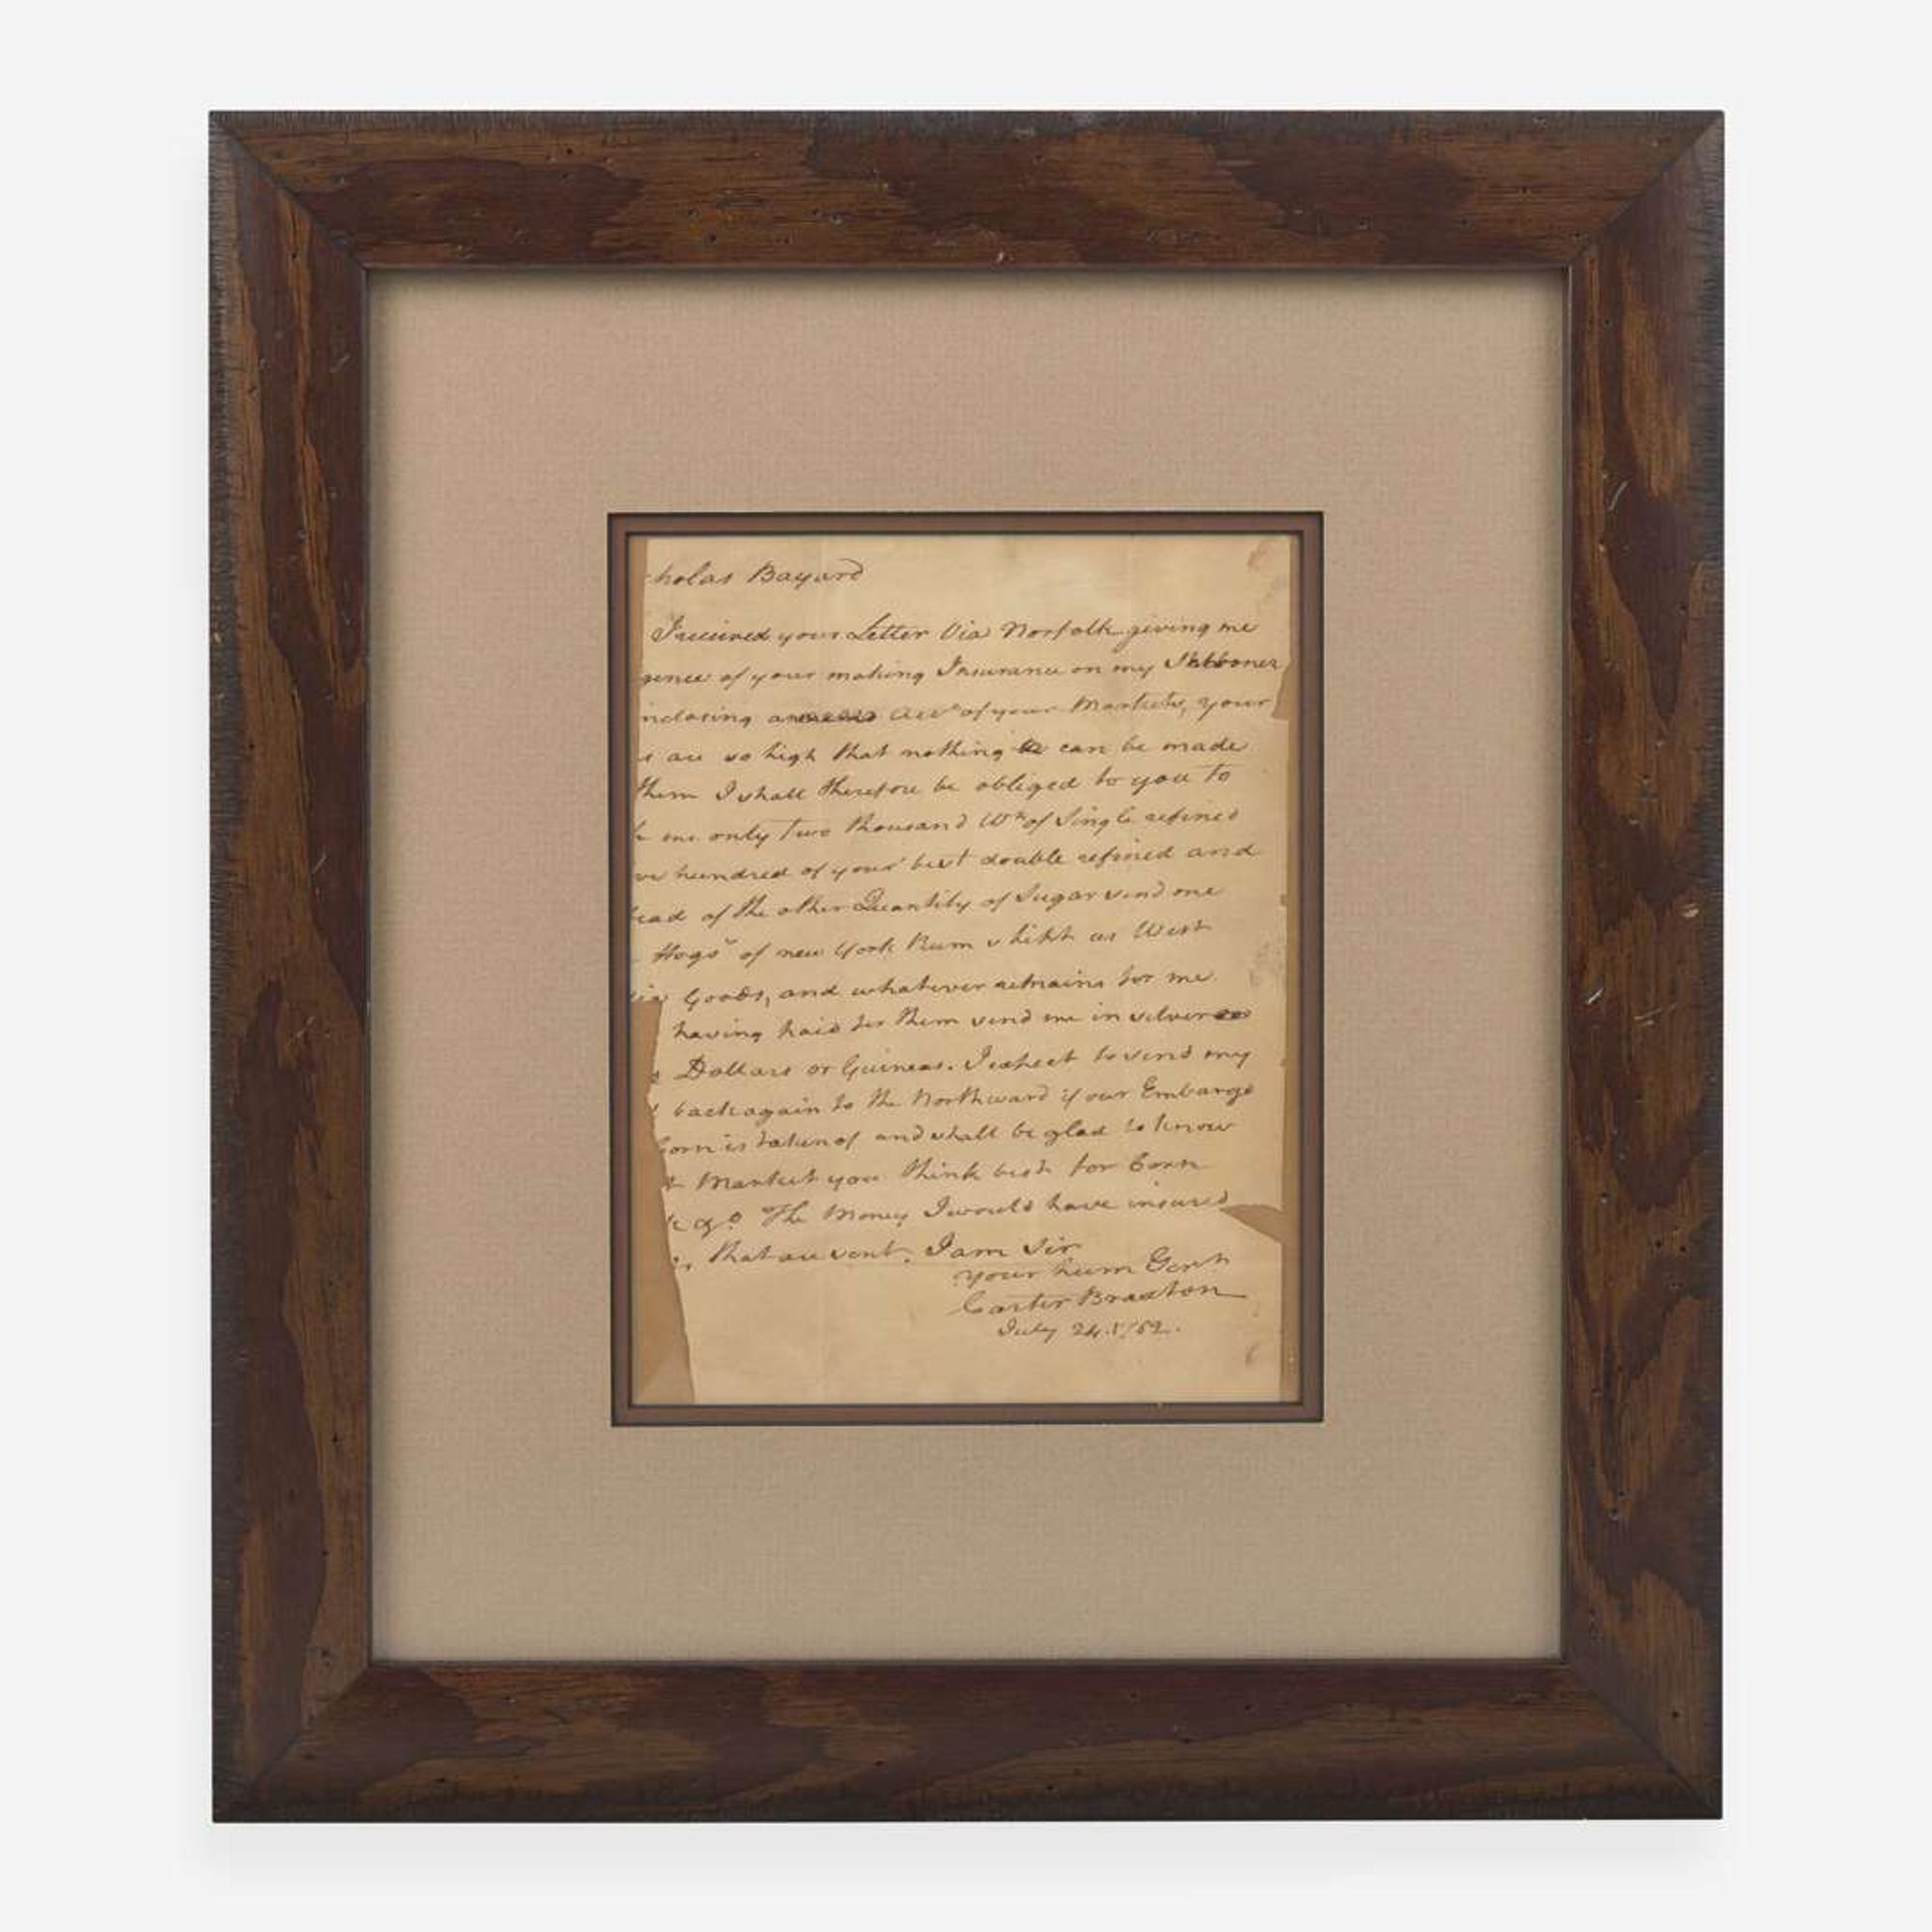 cholas Bayard
I received your Letter Via Norfolk giving me
gence of your making Insurance on my
nclosing Accᵗ of your Markets, your
s are so high that nothing can be made
them I shall therefore be obliged to you to
me only Two thousand Wᵗ of Single refined
ve hundred of your best double refined and
tead of the other Quantity of Sugar send me
Hogsˢ of new York Rum shipt as West
Goods, and whatever remains for me
having paid for them send me in silver
s Dollars or Guineas. I expect to send my
back again to the Northward if our Embargo
Corn is taken of and shall be glad to know
t Market you think best for Corn
The Money I would have insured
that are sent. I am Sir
Your hum Sert
Carter Braxton
July 24. 1762.